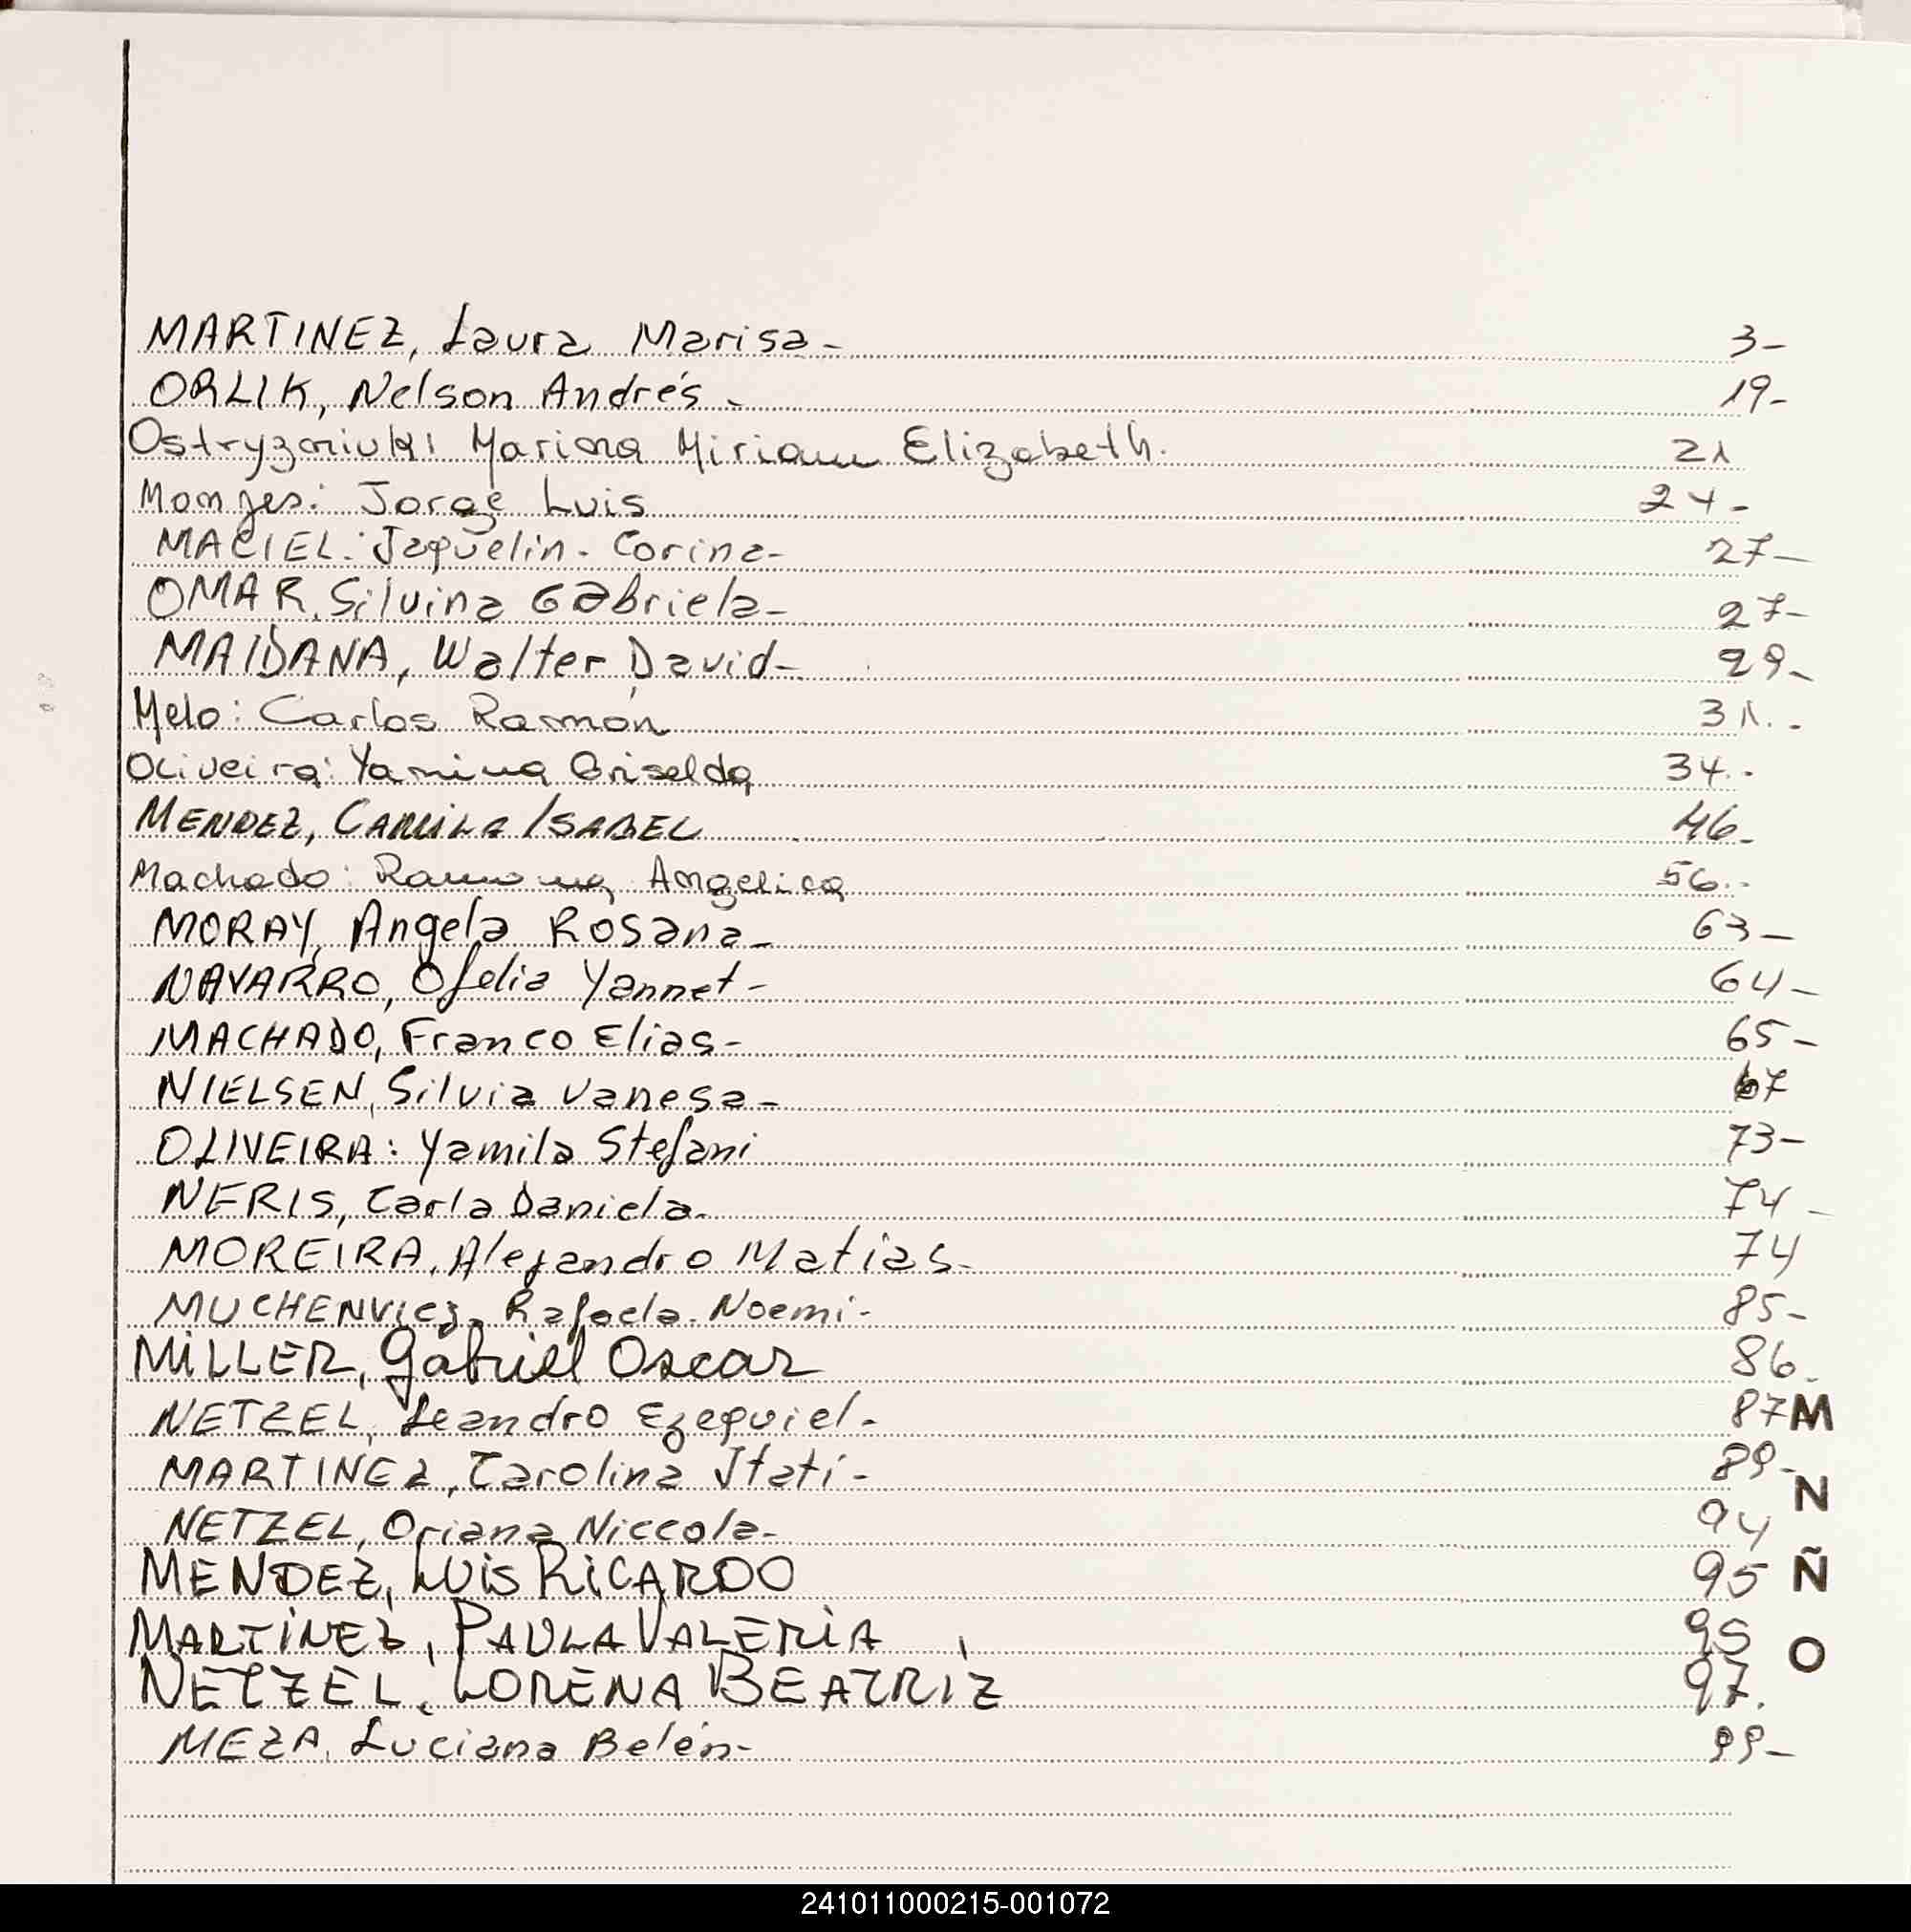 MARTINEZ, Laura Marisa- 3-
ORLIK, Nelson Andrés- 19-
Marina Miriam Elizabeth. 21
Monges: Jorge Luis 24-
MACIEL: Jaquelin. Corina- 27-
OMAR, Silvina Gabriela- 27-
MAIDANA, Walter David- 29-
Melo: Carlos Ramón 31.-
Oliveira: Yanina Griselda 34.-
MENDEZ, CAMILA ISABEL 46-
Machado: Ramona Angelica 56.-
MORAY, Angela Rosana- 63-
NAVARRO, Ofelia Yannet- 64-
MACHADO, Franco Elias- 65-
NIELSEN, Silvia Vanesa- 67
OLIVEIRA: Yamila Stefani 73-
NERIS, Carla Daniela. 74-
MOREIRA, Alejandro Matias- 74
MUCHENVIEZ, Rafaela. Noemi- 85-
MILLER, Gabriel Oscar 86.
NETZEL, Leandro Ezequiel- 87 M
MARTINEZ, Carolina Itatí- 89-
N
NETZEL, Oriana Niccola- 94
MENDEZ, LUIS RICARDO 95 Ñ
MARTINEZ, PAULA VALERIA, 95
O
NETZEL, LORENA BEATRIZ 97.
MEZA, Luciana Belén- 99-
241011000215-001072